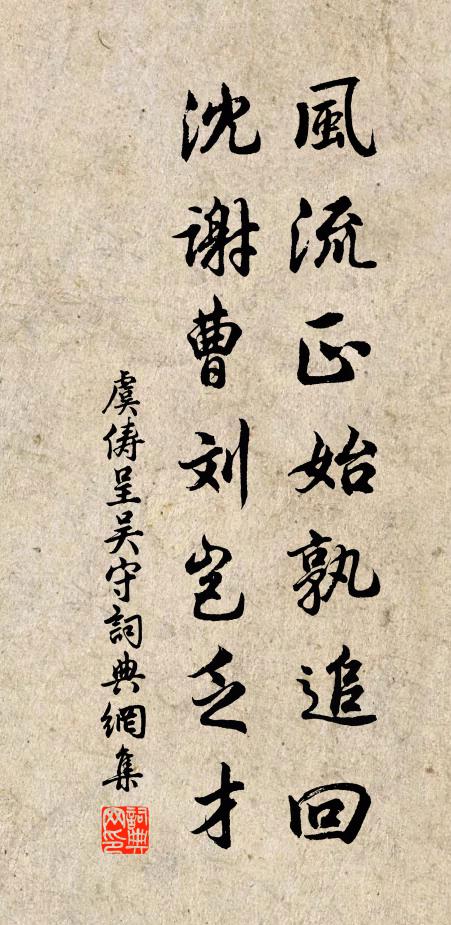 風流正始孰追回
沈謝曹刘岂乏才
虞俦呈吴守詞典網集
詞典網印